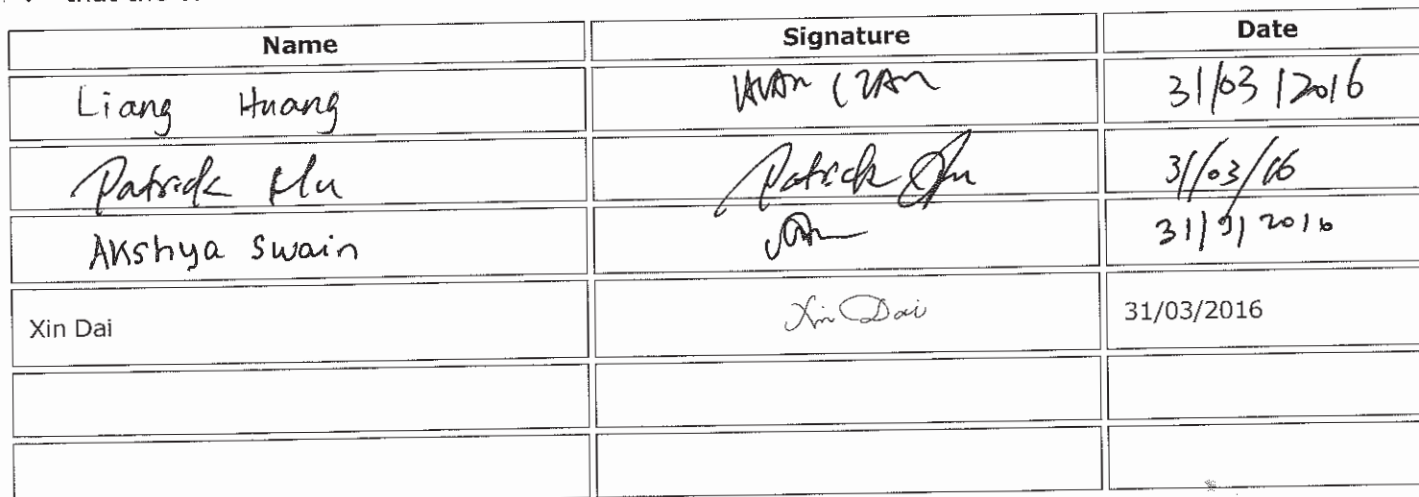 that the
Name Signature Date
Liang Huang 31/03/2016
Patrick Hu Patrick Hu 31/03/16
Akshya Swain 31/3/2016
Xin Dai Xin Dai 31/03/2016